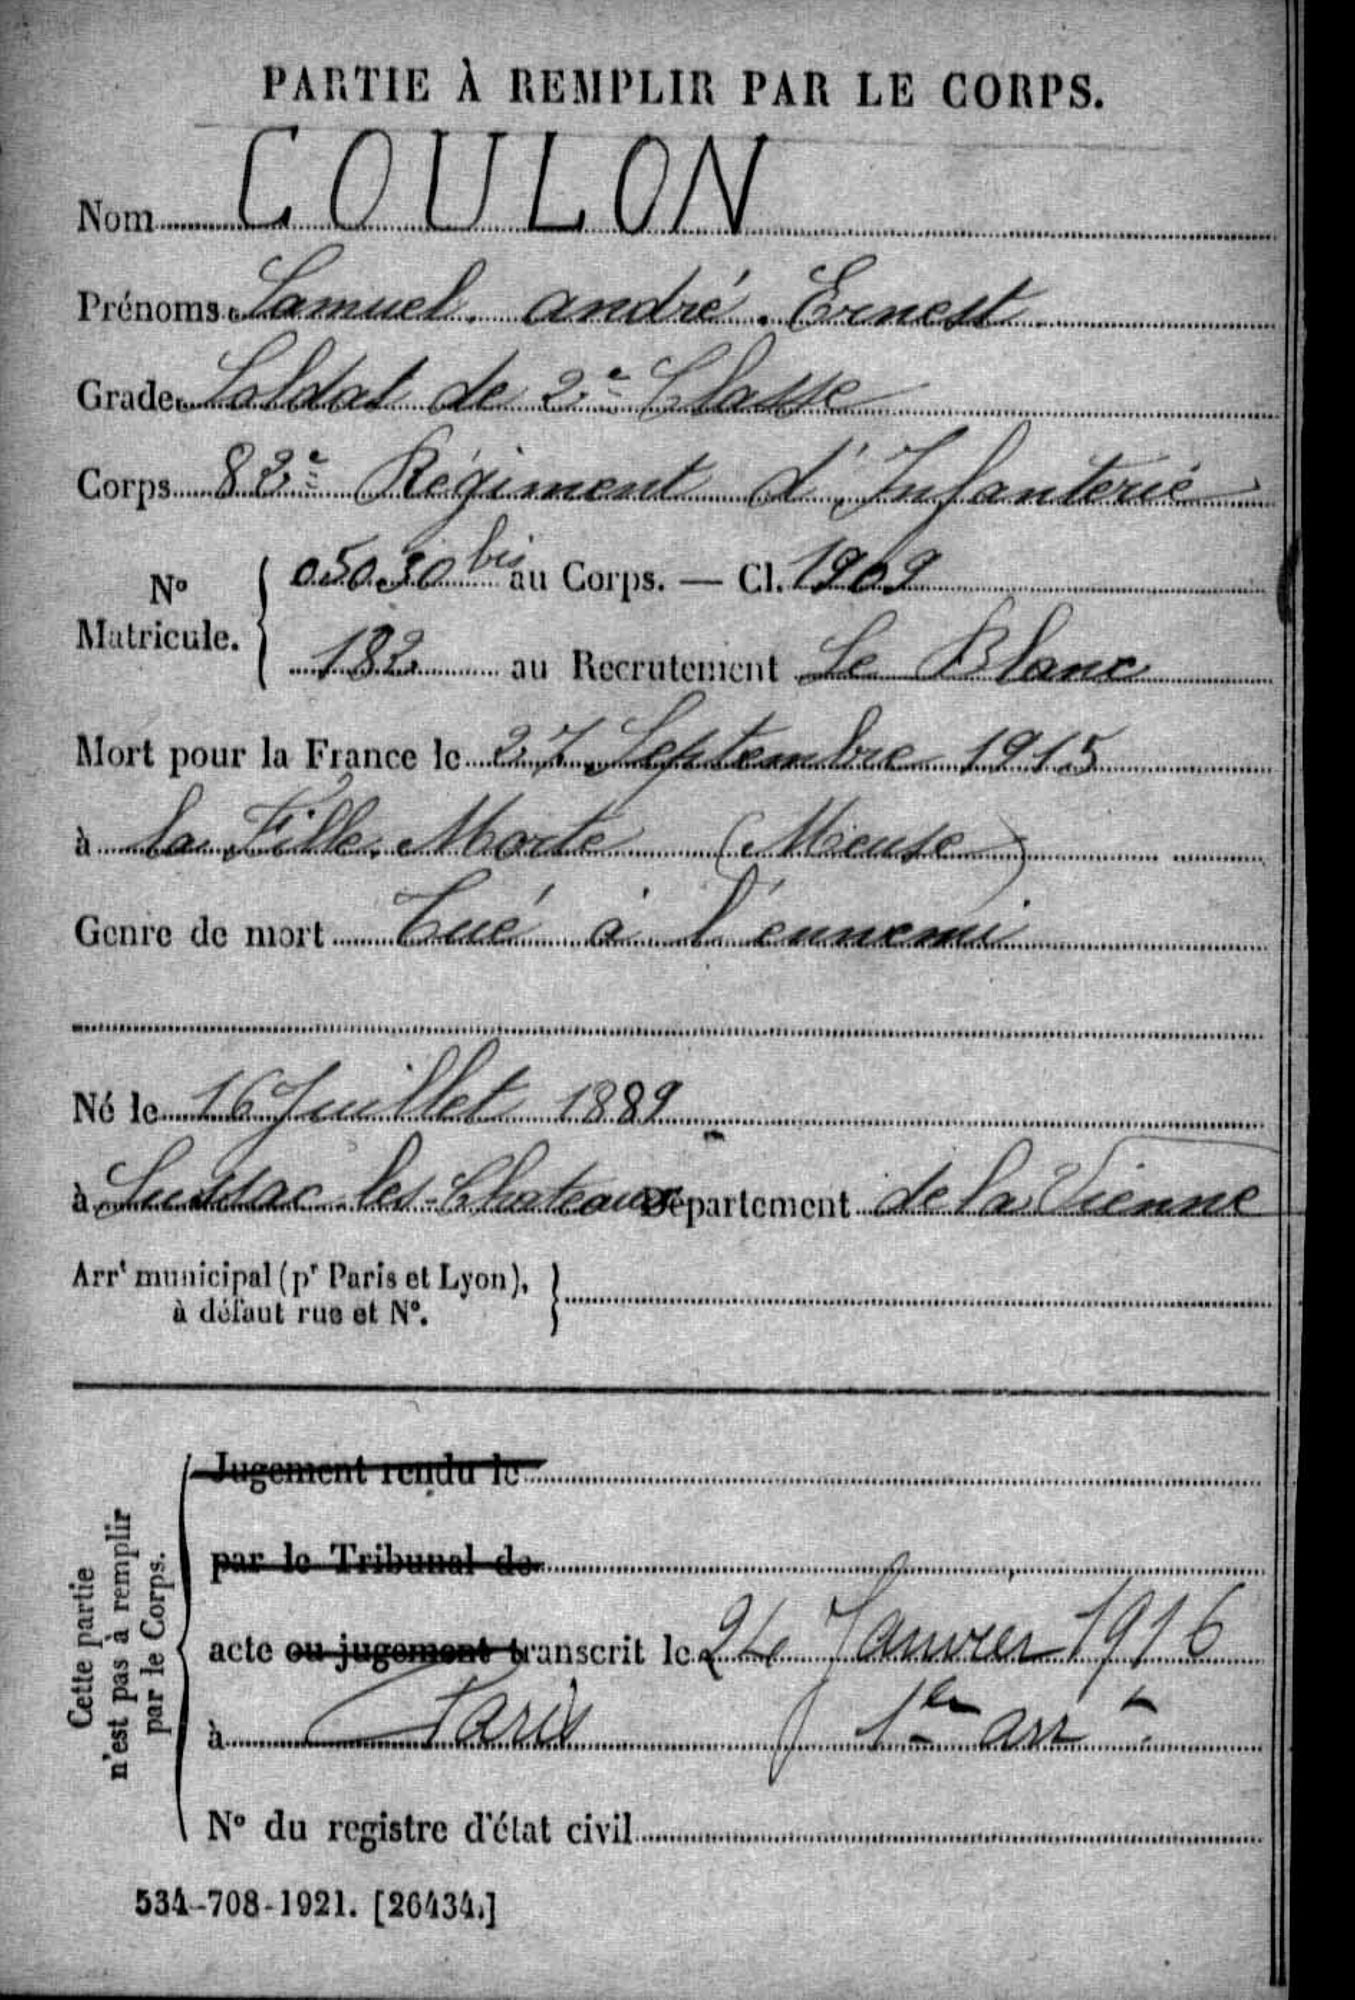 PARTIE À REMPLIR PAR LE CORPS.
Nom COULON
Prénoms Samuel André Ernest
Grade Soldat de 2e Classe
Corps 82e Régiment d'Infanterie
No Matricule. 05030 bis au Corps. — Cl. 1909
182 au Recrutement Le Blanc
Mort pour la France le 27 Septembre 1915
à la Fille Morte (Meuse)
Genre de mort Tué à l'ennemi
Né le 16 Juillet 1889
à Lussac-les-Chateaux Département de la Vienne
Arrt municipal (pr Paris et Lyon),
à défaut rue et No.
Cette partie
n'est pas à remplir
par le Corps.
Jugement rendu le
par le Tribunal de
acte ou jugement transcrit le 24 Janvier 1916
à Paris 1er arrt
No du registre d'état civil
534-708-1921. [26434.]